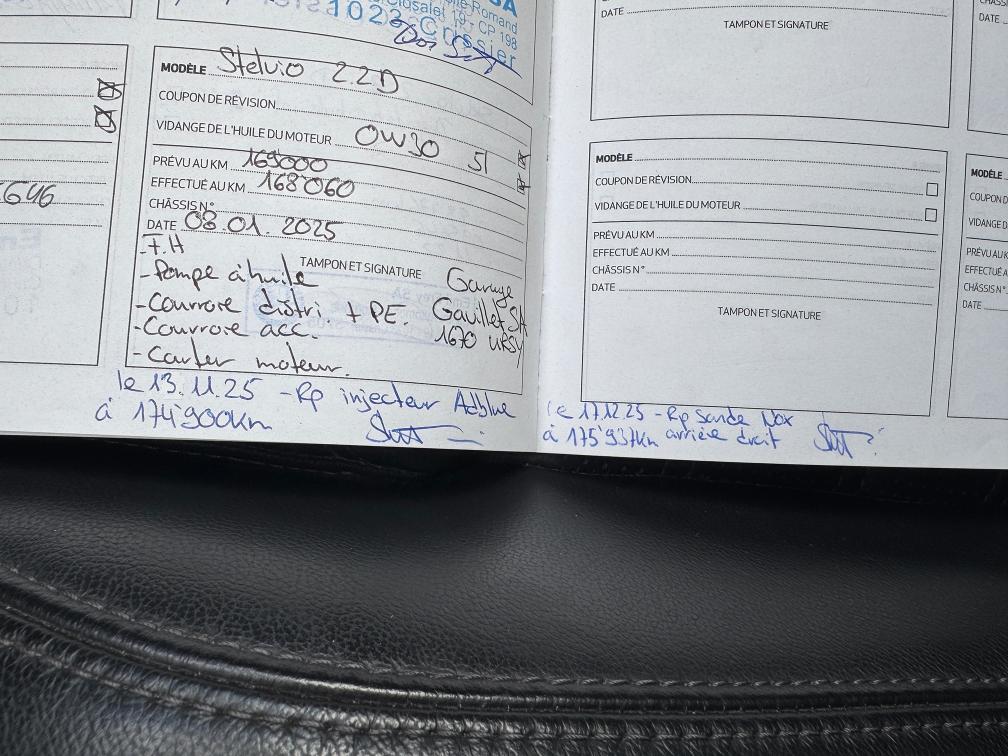 1023 Crissier
646
MODÈLE Stelvio 2.2D
COUPON DE RÉVISION
VIDANGE DE L'HUILE DU MOTEUR 0W30 5l
PRÉVU AU KM 169000
EFFECTUÉ AU KM 168'060
CHÂSSIS N°
DATE 08.01.2025
- F.H
TAMPON ET SIGNATURE
- Pompe à huile
- Courroie distri. + P.E.
- Courroie acc.
- Carter moteur.
Garage
Gavillet SA
1670 URSY
le 13.11.25 - Rp injecteur Adblue
à 174'900km
DATE
TAMPON ET SIGNATURE
MODÈLE
COUPON DE RÉVISION
VIDANGE DE L'HUILE DU MOTEUR
PRÉVU AU KM
EFFECTUÉ AU KM
CHÂSSIS N°
DATE
TAMPON ET SIGNATURE
le 17.12.25 - Rp Sonde Nox
à 175'937km arrière droit
DATE
MODÈLE
COUPON D
VIDANGE D
PRÉVU AU K
EFFECTUÉ A
CHÂSSIS N°
DATE